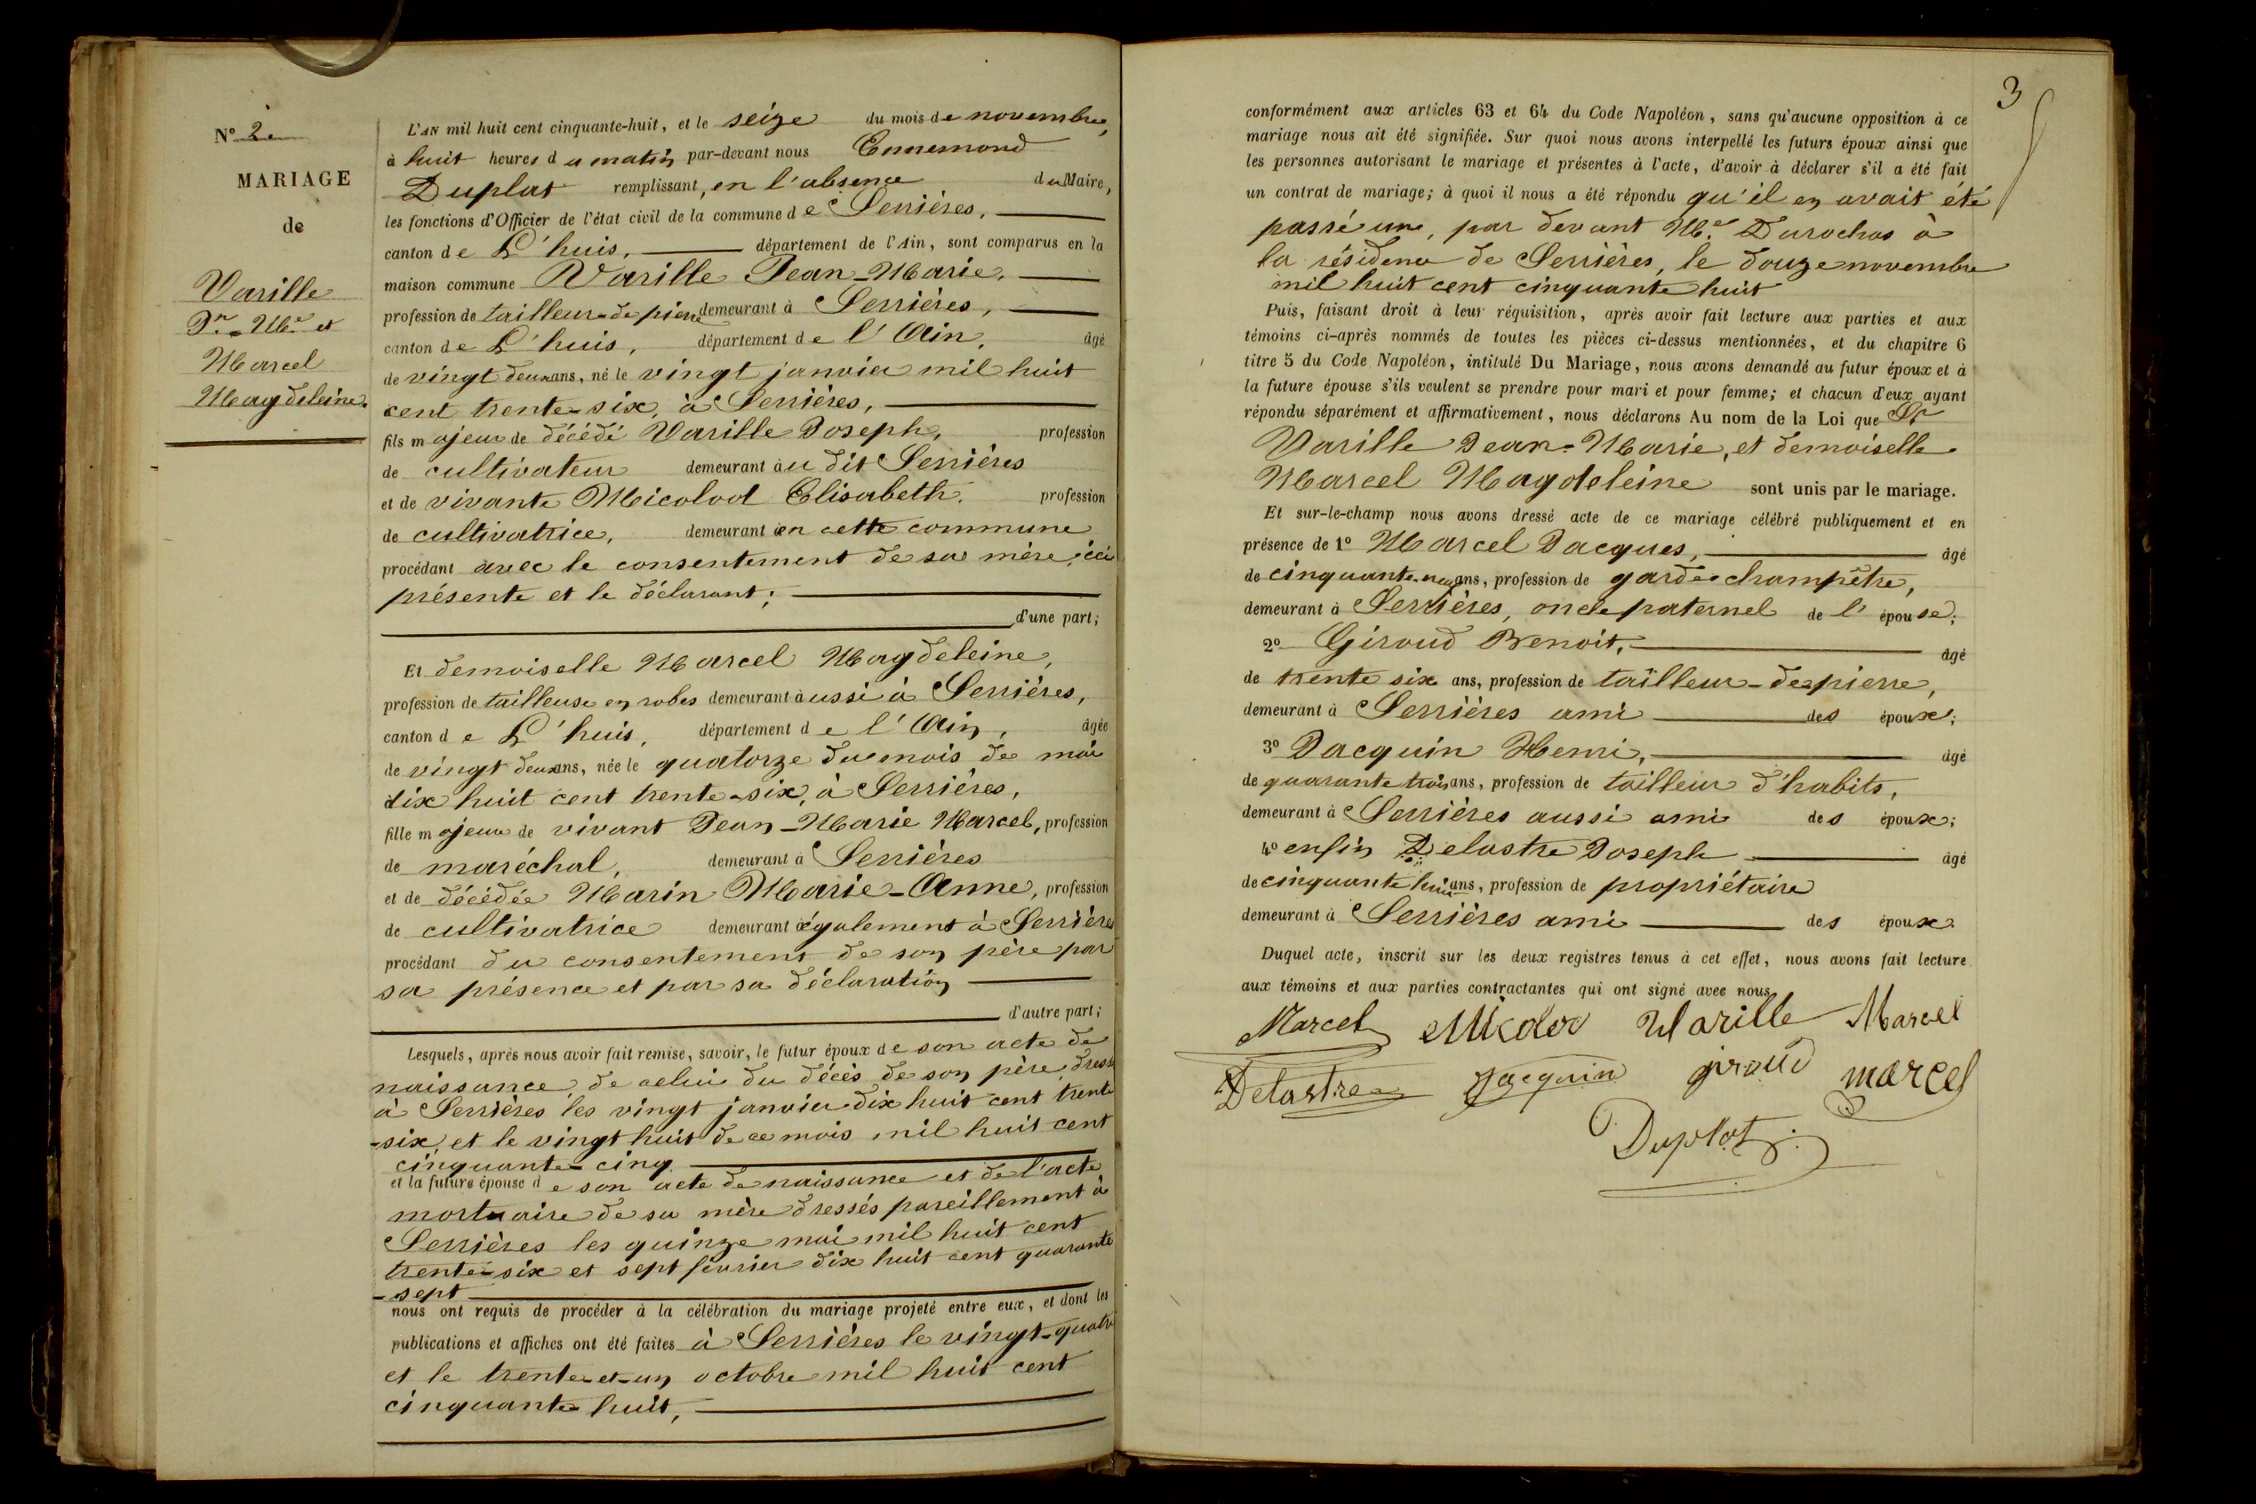 N° 2.
MARIAGE
de
Varille
Jn. Mie. et
Marcel
Magdeleine.
L'AN mil huit cent cinquante-huit, et le seize du mois de novembre,
à huit heures du matin par-devant nous Ennemond
Duplat remplissant, en l'absence du Maire,
les fonctions d'Officier de l'état civil de la commune de Serrières,
canton de L'huis, département de l'Ain, sont comparus en la
maison commune Varille Jean-Marie,
profession de tailleur-de pierre demeurant à Serrières,
canton de L'huis, département de l'Ain, âgé
de vingt deux ans, né le vingt janvier mil huit
cent trente-six, à Serrières,
fils majeur de décédé Varille Joseph, profession
de cultivateur demeurant au dit Serrières
et de vivante Micolod Elisabeth. profession
de cultivatrice, demeurant en cette commune
procédant avec le consentement de sa mère, ici
présente et le déclarant;
d'une part;
Et demoiselle Marcel Magdeleine,
profession de tailleuse en robes demeurant aussi à Serrières,
canton de L'huis, département de l'Ain, âgée
de vingt deux ans, née le quatorze du mois de mai
dix huit cent trente-six, à Serrières,
fille majeure de vivant Jean-Marie Marcel, profession
de maréchal, demeurant à Serrières
et de décédée Marin Marie-Anne, profession
de cultivatrice demeurant également à Serrières
procédant du consentement de son père par
sa présence et par sa déclaration
d'autre part;
Lesquels, après nous avoir fait remise, savoir, le futur époux de son acte de
naissance, de celui du décès de son père, dressés
à Serrières les vingt janvier dix huit cent trente
-six, et le vingt huit de ce mois mil huit cent
cinquante-cinq
et la future épouse de son acte de naissance et de l'acte
mortuaire de sa mère dressés pareillement à
Serrières les quinze mai mil huit cent
trente-six et sept février dix huit cent quarante
-sept
nous ont requis de procéder à la célébration du mariage projeté entre eux, et dont les
publications et affiches ont été faites à Serrières le vingt-quatre
et le trente-et-un octobre mil huit cent
cinquante huit,
3
conformément aux articles 63 et 64 du Code Napoléon, sans qu'aucune opposition à ce
mariage nous ait été signifiée. Sur quoi nous avons interpellé les futurs époux ainsi que
les personnes autorisant le mariage et présentes à l'acte, d'avoir à déclarer s'il a été fait
un contrat de mariage; à quoi il nous a été répondu qu'il en avait été
passé un, par devant Me. Durochas à
la résidence de Serrières, le douze novembre
mil huit cent cinquante huit
Puis, faisant droit à leur réquisition, après avoir fait lecture aux parties et aux
témoins ci-après nommés de toutes les pièces ci-dessus mentionnées, et du chapitre 6
titre 5 du Code Napoléon, intitulé Du Mariage, nous avons demandé au futur époux et à
la future épouse s'ils veulent se prendre pour mari et pour femme; et chacun d'eux ayant
répondu séparément et affirmativement, nous déclarons Au nom de la Loi que Sr
Varille Jean-Marie, et demoiselle
Marcel Magdeleine sont unis par le mariage.
Et sur-le-champ nous avons dressé acte de ce mariage célébré publiquement et en
présence de 1° Marcel Jacques, âgé
de cinquante-neuf ans, profession de garde-champêtre,
demeurant à Serrières, oncle paternel de l'épouse;
2° Giroud Benoit, âgé
de trente six ans, profession de tailleur-de-pierre,
demeurant à Serrières ami des époux;
3° Jacquin Henri, âgé
de quarante trois ans, profession de tailleur d'habits,
demeurant à Serrières aussi ami des époux;
4° enfin Delastre Joseph âgé
de cinquante huit ans, profession de propriétaire
demeurant à Serrières ami des époux.
Duquel acte, inscrit sur les deux registres tenus à cet effet, nous avons fait lecture
aux témoins et aux parties contractantes qui ont signé avec nous.
Marcel Varille Marcel
Delastre Jacquin giroud marcel
Duplat